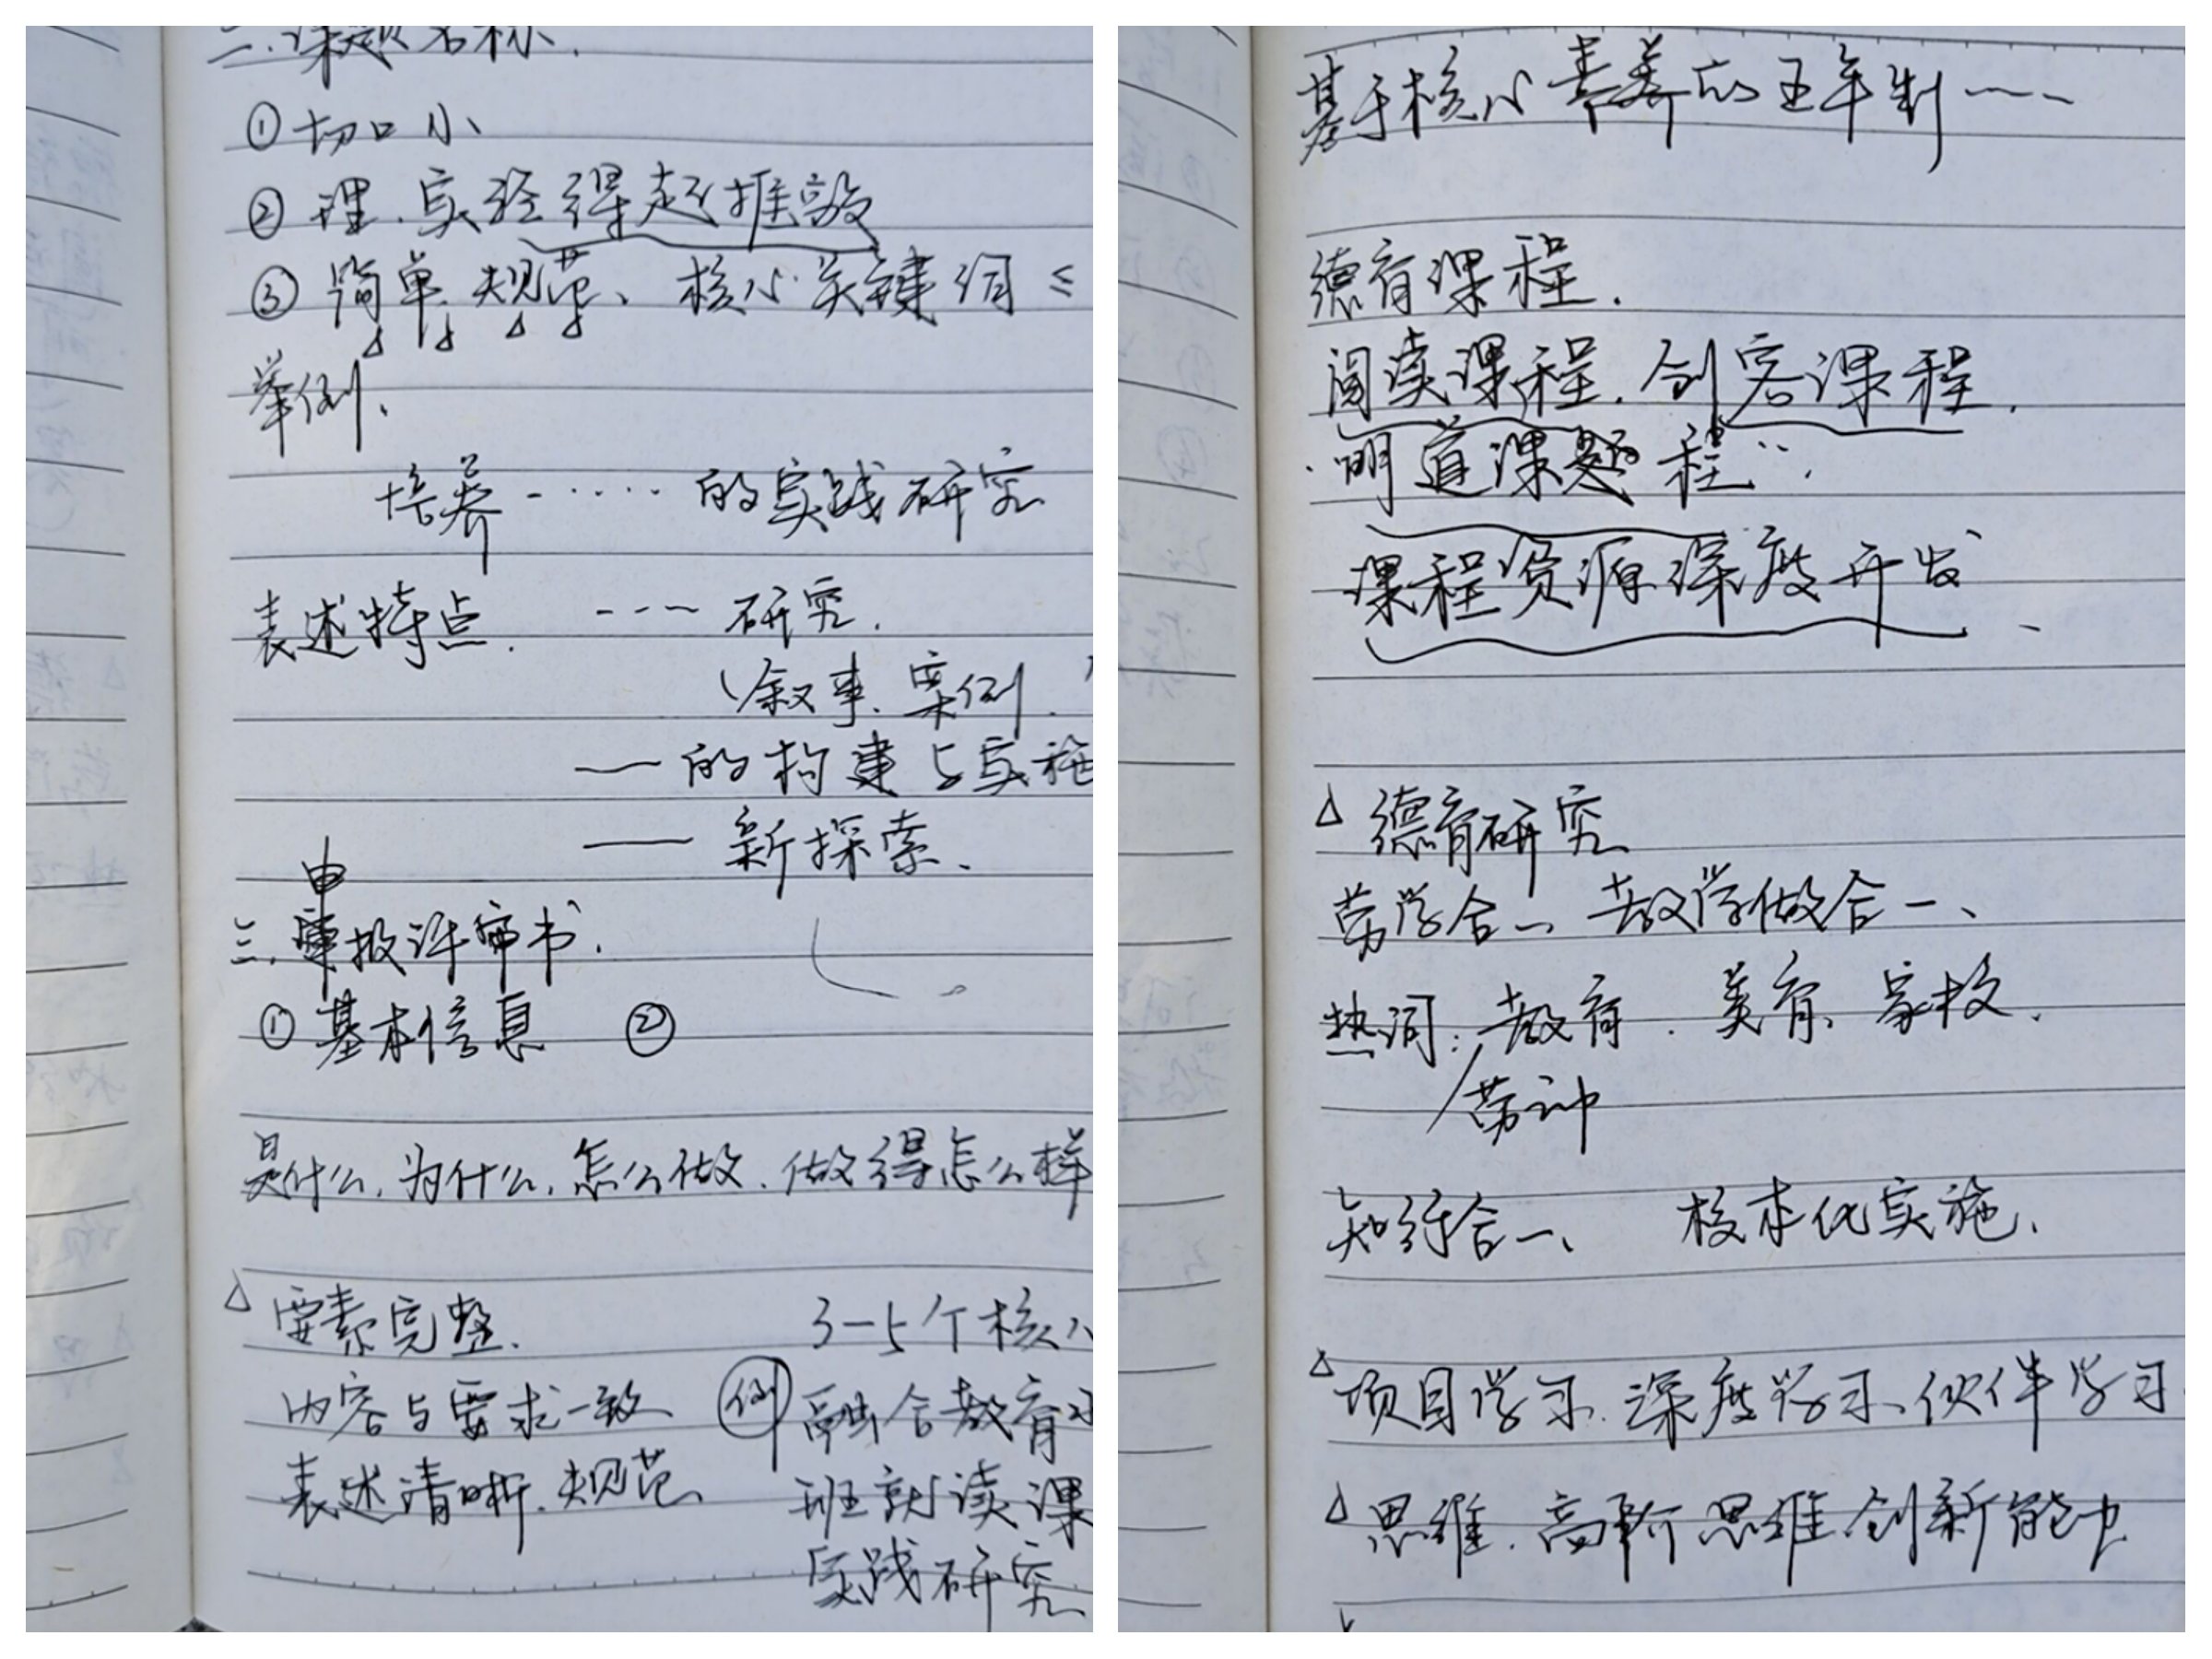 二.课题名称.
①切口小
②理、实经得起推敲
③简单、规范、核心关键词≤
举例、
培养-····的实践研究
表述特点. ---研究.
(叙事、案例.
——的构建与实施
——新探索、
申
三.报评审书.
①基本信息 ②
是什么,为什么,怎么做、做得怎么样
△要素完整. 3-5个核心
内容与要求一致 例 融合教育
表述清晰、规范 班就读课
实践研究
基于核心素养的五年制----
德育课程.
阅读课程、创客课程.
·明道课程··.
课程资源深度开发、
△德育研究
劳学合一、教学做合一、
热词:教育、美育、家校.
劳动
知行合一、 校本化实施、
△项目学习、深度学习、伙伴学习
△思维、高阶思维 创新能力